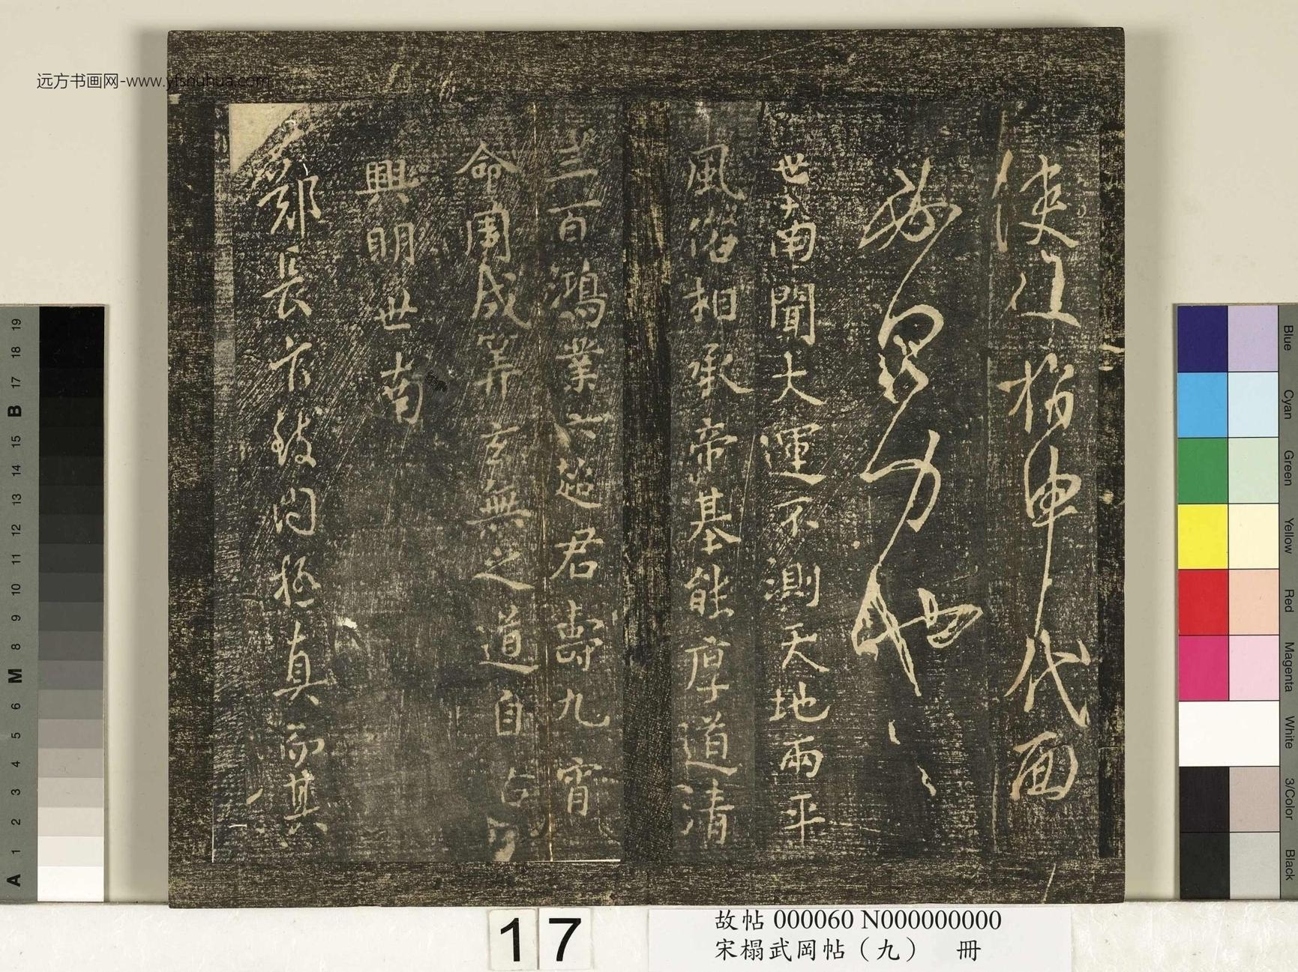 使至播申代面
努力也
世南聞大運不測天地兩平
風俗相承帝基能厚道清
三百鴻業六超君壽九霄
命周成筭玄無之道自
興明世南
鄭長官致問極真而其
远方书画网-www.yfshuhua.com
17
故帖 000060 N000000000
宋榻武岡帖（九） 冊
Blue
Cyan
Green
Yellow
Red
Magenta
White
3/Color
Black
19
18
17
B
15
14
13
12
11
10
9
8
M
6
5
4
3
2
1
A